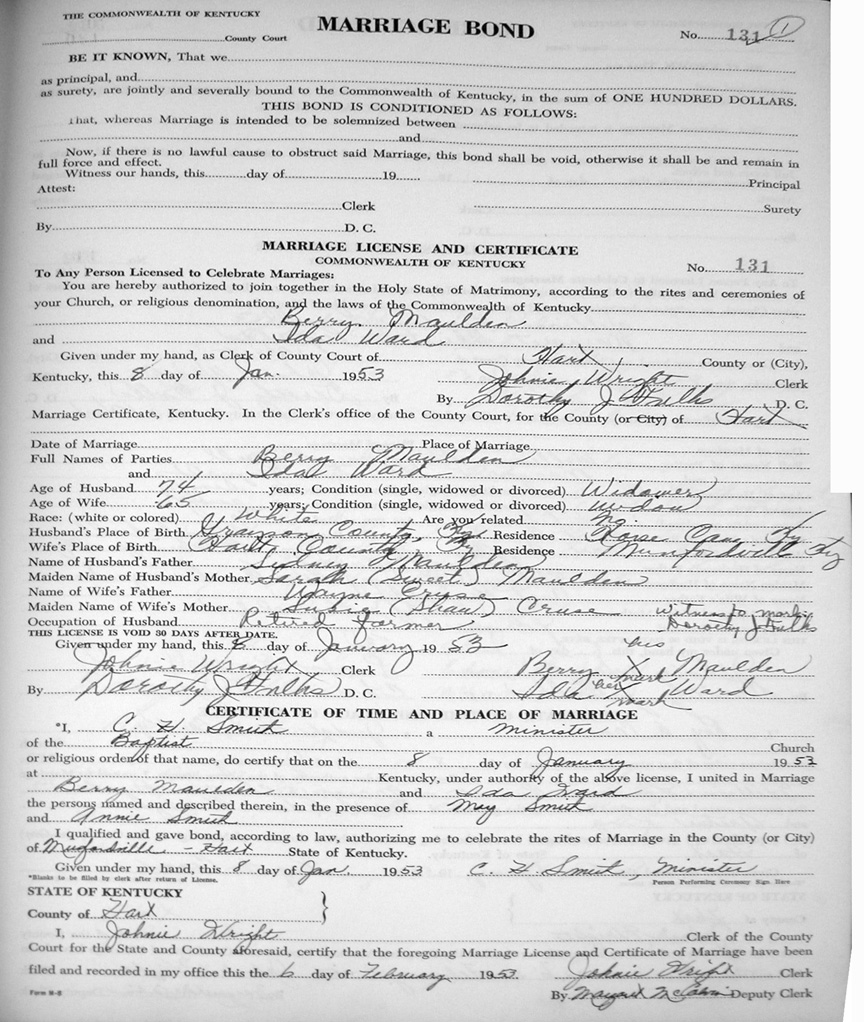 THE COMMONWEALTH OF KENTUCKY
MARRIAGE BOND
County Court
No. 131 1
BE IT KNOWN, That we
as principal, and
as surety, are jointly and severally bound to the Commonwealth of Kentucky, in the sum of ONE HUNDRED DOLLARS.
THIS BOND IS CONDITIONED AS FOLLOWS:
That, whereas Marriage is intended to be solemnized between
and
Now, if there is no lawful cause to obstruct said Marriage, this bond shall be void, otherwise it shall be and remain in
full force and effect.
Witness our hands, this day of 19
Principal
Attest:
Clerk
Surety
By D. C.
MARRIAGE LICENSE AND CERTIFICATE
COMMONWEALTH OF KENTUCKY
No. 131
To Any Person Licensed to Celebrate Marriages:
You are hereby authorized to join together in the Holy State of Matrimony, according to the rites and ceremonies of
your Church, or religious denomination, and the laws of the Commonwealth of Kentucky
Berry Maulden
and Ida Ward
Given under my hand, as Clerk of County Court of Hart County or (City),
Kentucky, this 8 day of Jan. 1953 Johnie Wright Clerk
By Dorothy J Fulks D. C.
Marriage Certificate, Kentucky. In the Clerk's office of the County Court, for the County (or City) of Hart
Date of Marriage Place of Marriage
Full Names of Parties Berry Maulden
and Ida Ward
Age of Husband 74 years; Condition (single, widowed or divorced) Widower
Age of Wife 65 years; Condition (single, widowed or divorced) widow
Race: (white or colored) White Are you related no.
Husband's Place of Birth Grayson County, Ky Residence Horse Cave Ky
Wife's Place of Birth Hart County Ky Residence Munfordville Ky
Name of Husband's Father Sidney Maulden
Maiden Name of Husband's Mother Sarah (Sweet) Maulden
Name of Wife's Father Wayne Cruse
Maiden Name of Wife's Mother (Shaw) Cruse Witness to mark:
Occupation of Husband Retired farmer Dorothy J Fulks
THIS LICENSE IS VOID 30 DAYS AFTER DATE.
Given under my hand, this 8 day of January 1953 his
Johnie Wright Clerk Berry X Maulden
mark
By Dorothy J Fulks D. C. Ida her X Ward
mark
CERTIFICATE OF TIME AND PLACE OF MARRIAGE
*I, C. H Smith a minister
of the Baptist Church
or religious order of that name, do certify that on the 8 day of January 1953
at Kentucky, under authority of the above license, I united in Marriage
Berry Maulden and Ida Ward
the persons named and described therein, in the presence of May Smith
and Annie Smith
I qualified and gave bond, according to law, authorizing me to celebrate the rites of Marriage in the County (or City)
of Munfordville - Hart State of Kentucky.
Given under my hand, this 8 day of Jan. 1953 C. H Smith, Minister
*Blanks to be filled by clerk after return of License. Person Performing Ceremony Sign Here
STATE OF KENTUCKY
County of Hart
I, Johnie Wright Clerk of the County
Court for the State and County aforesaid, certify that the foregoing Marriage License and Certificate of Marriage have been
filed and recorded in my office this the 6 day of February 1953. Johnie Wright Clerk
Form M-8 By Margaret Deputy Clerk